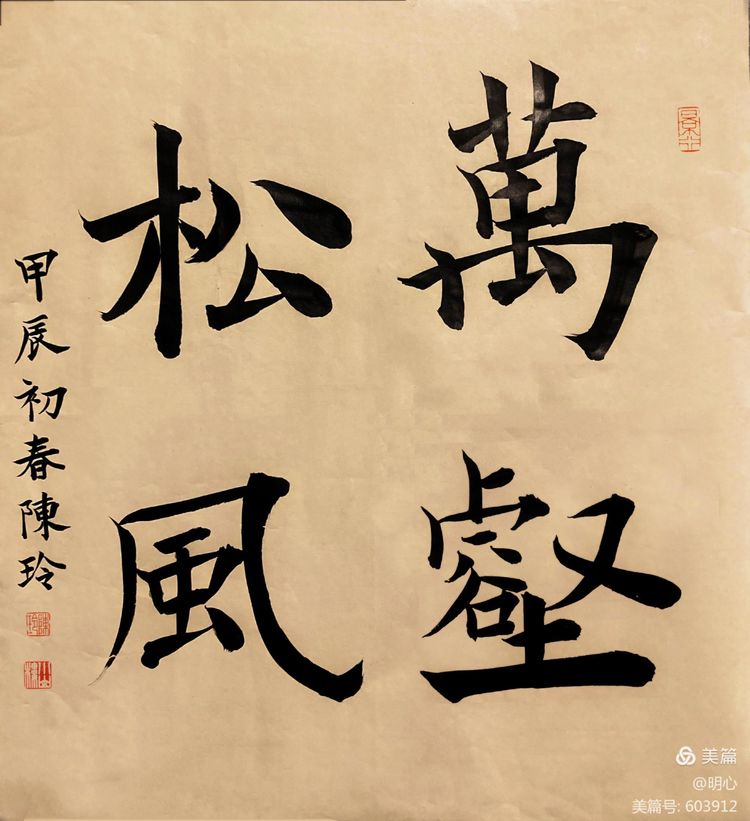 萬壑
松風
甲辰初春陳玲
美篇
@明心
美篇号: 603912